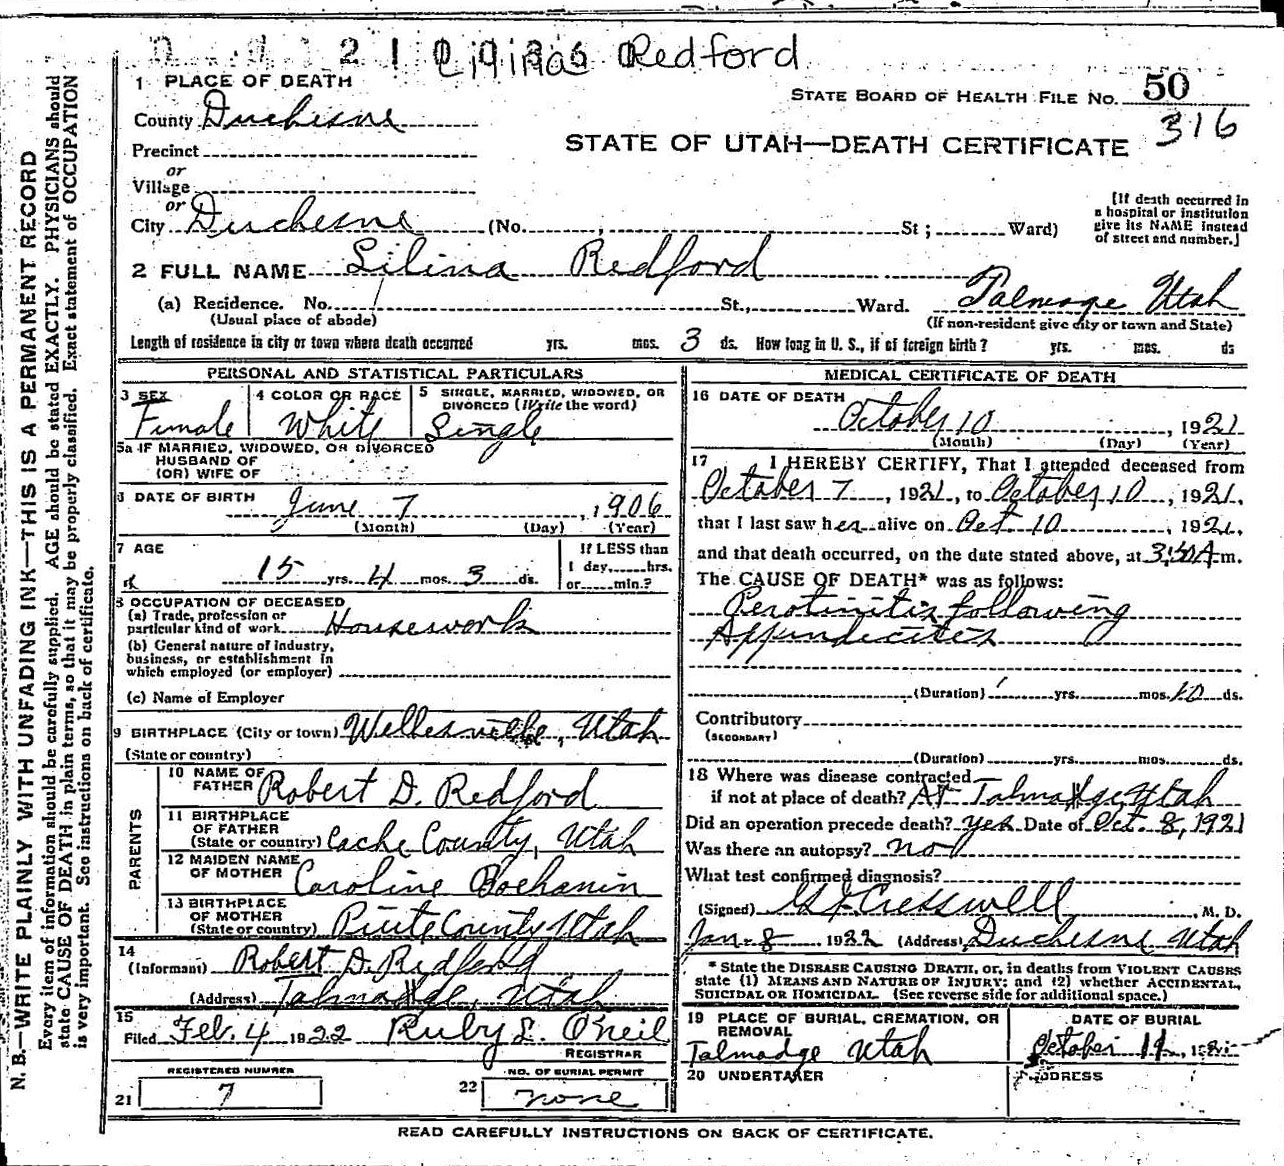 2100360
Lilina Redford
1 PLACE OF DEATH
STATE BOARD OF HEALTH FILE NO. 50
County Duchesne
316
STATE OF UTAH—DEATH CERTIFICATE
Precinct
or
Village
or
City Duchesne (No. , St; Ward)
[If death occurred in
a hospital or institution
give its NAME instead
of street and number.]
2 FULL NAME Lilina Redford
(a) Residence. No. St., Ward. Talmage Utah
(Usual place of abode) (If non-resident give city or town and State)
Length of residence in city or town where death occurred yrs. mos. 3 ds. How long in U. S., if of foreign birth? yrs. mos. ds
PERSONAL AND STATISTICAL PARTICULARS
3 SEX
Female
4 COLOR OR RACE
White
5 SINGLE, MARRIED, WIDOWED, OR
DIVORCED (Write the word)
Single
5a IF MARRIED, WIDOWED, OR DIVORCED
HUSBAND OF
(OR) WIFE OF
6 DATE OF BIRTH June 7, 1906
(Month) (Day) (Year)
7 AGE
15 yrs. 4 mos. 3 ds.
If LESS than
1 day, hrs.
or min.?
8 OCCUPATION OF DECEASED
(a) Trade, profession or
particular kind of work Housework
(b) General nature of industry,
business, or establishment in
which employed (or employer)
(c) Name of Employer
9 BIRTHPLACE (City or town) Wellesville, Utah
(State or country)
PARENTS
10 NAME OF
FATHER Robert D. Redford
11 BIRTHPLACE
OF FATHER
(State or country) Cache County, Utah
12 MAIDEN NAME
OF MOTHER Caroline Bochanin
13 BIRTHPLACE
OF MOTHER
(State or country) Piute County Utah
14
(Informant) Robert D. Redford
(Address) Talmadge, Utah
15
Filed Feb. 4 1922 Ruby E. O'Neil
REGISTRAR
REGISTERED NUMBER
21 7
NO. OF BURIAL PERMIT
22 none
MEDICAL CERTIFICATE OF DEATH
16 DATE OF DEATH
October 10, 1921
(Month) (Day) (Year)
17 I HEREBY CERTIFY, That I attended deceased from
October 7, 1921, to October 10, 1921,
that I last saw her alive on Oct. 10, 1921,
and that death occurred, on the date stated above, at 3:50A m.
The CAUSE OF DEATH* was as follows:
Perotinitis following
Appendecites
(Duration) yrs. mos. 10 ds.
Contributory
(SECONDARY)
(Duration) yrs. mos. ds.
18 Where was disease contracted
if not at place of death? At Talmadge Utah
Did an operation precede death? yes Date of Oct. 8, 1921
Was there an autopsy? no
What test confirmed diagnosis?
(Signed) Cresswell, M. D.
Jan. 8 1922 (Address) Duchesne Utah
* State the DISEASE CAUSING DEATH, or, in deaths from VIOLENT CAUSES
state (1) MEANS AND NATURE OF INJURY; and (2) whether ACCIDENTAL,
SUICIDAL OR HOMICIDAL. (See reverse side for additional space.)
19 PLACE OF BURIAL, CREMATION, OR
REMOVAL
Talmadge Utah
DATE OF BURIAL
October 11,
20 UNDERTAKER
ADDRESS
READ CAREFULLY INSTRUCTIONS ON BACK OF CERTIFICATE.
N. B.—WRITE PLAINLY WITH UNFADING INK—THIS IS A PERMANENT RECORD
Every item of information should be carefully supplied. AGE should be stated EXACTLY. PHYSICIANS should
state CAUSE OF DEATH in plain terms, so that it may be properly classified. Exact statement of OCCUPATION
is very important. See instructions on back of certificate.